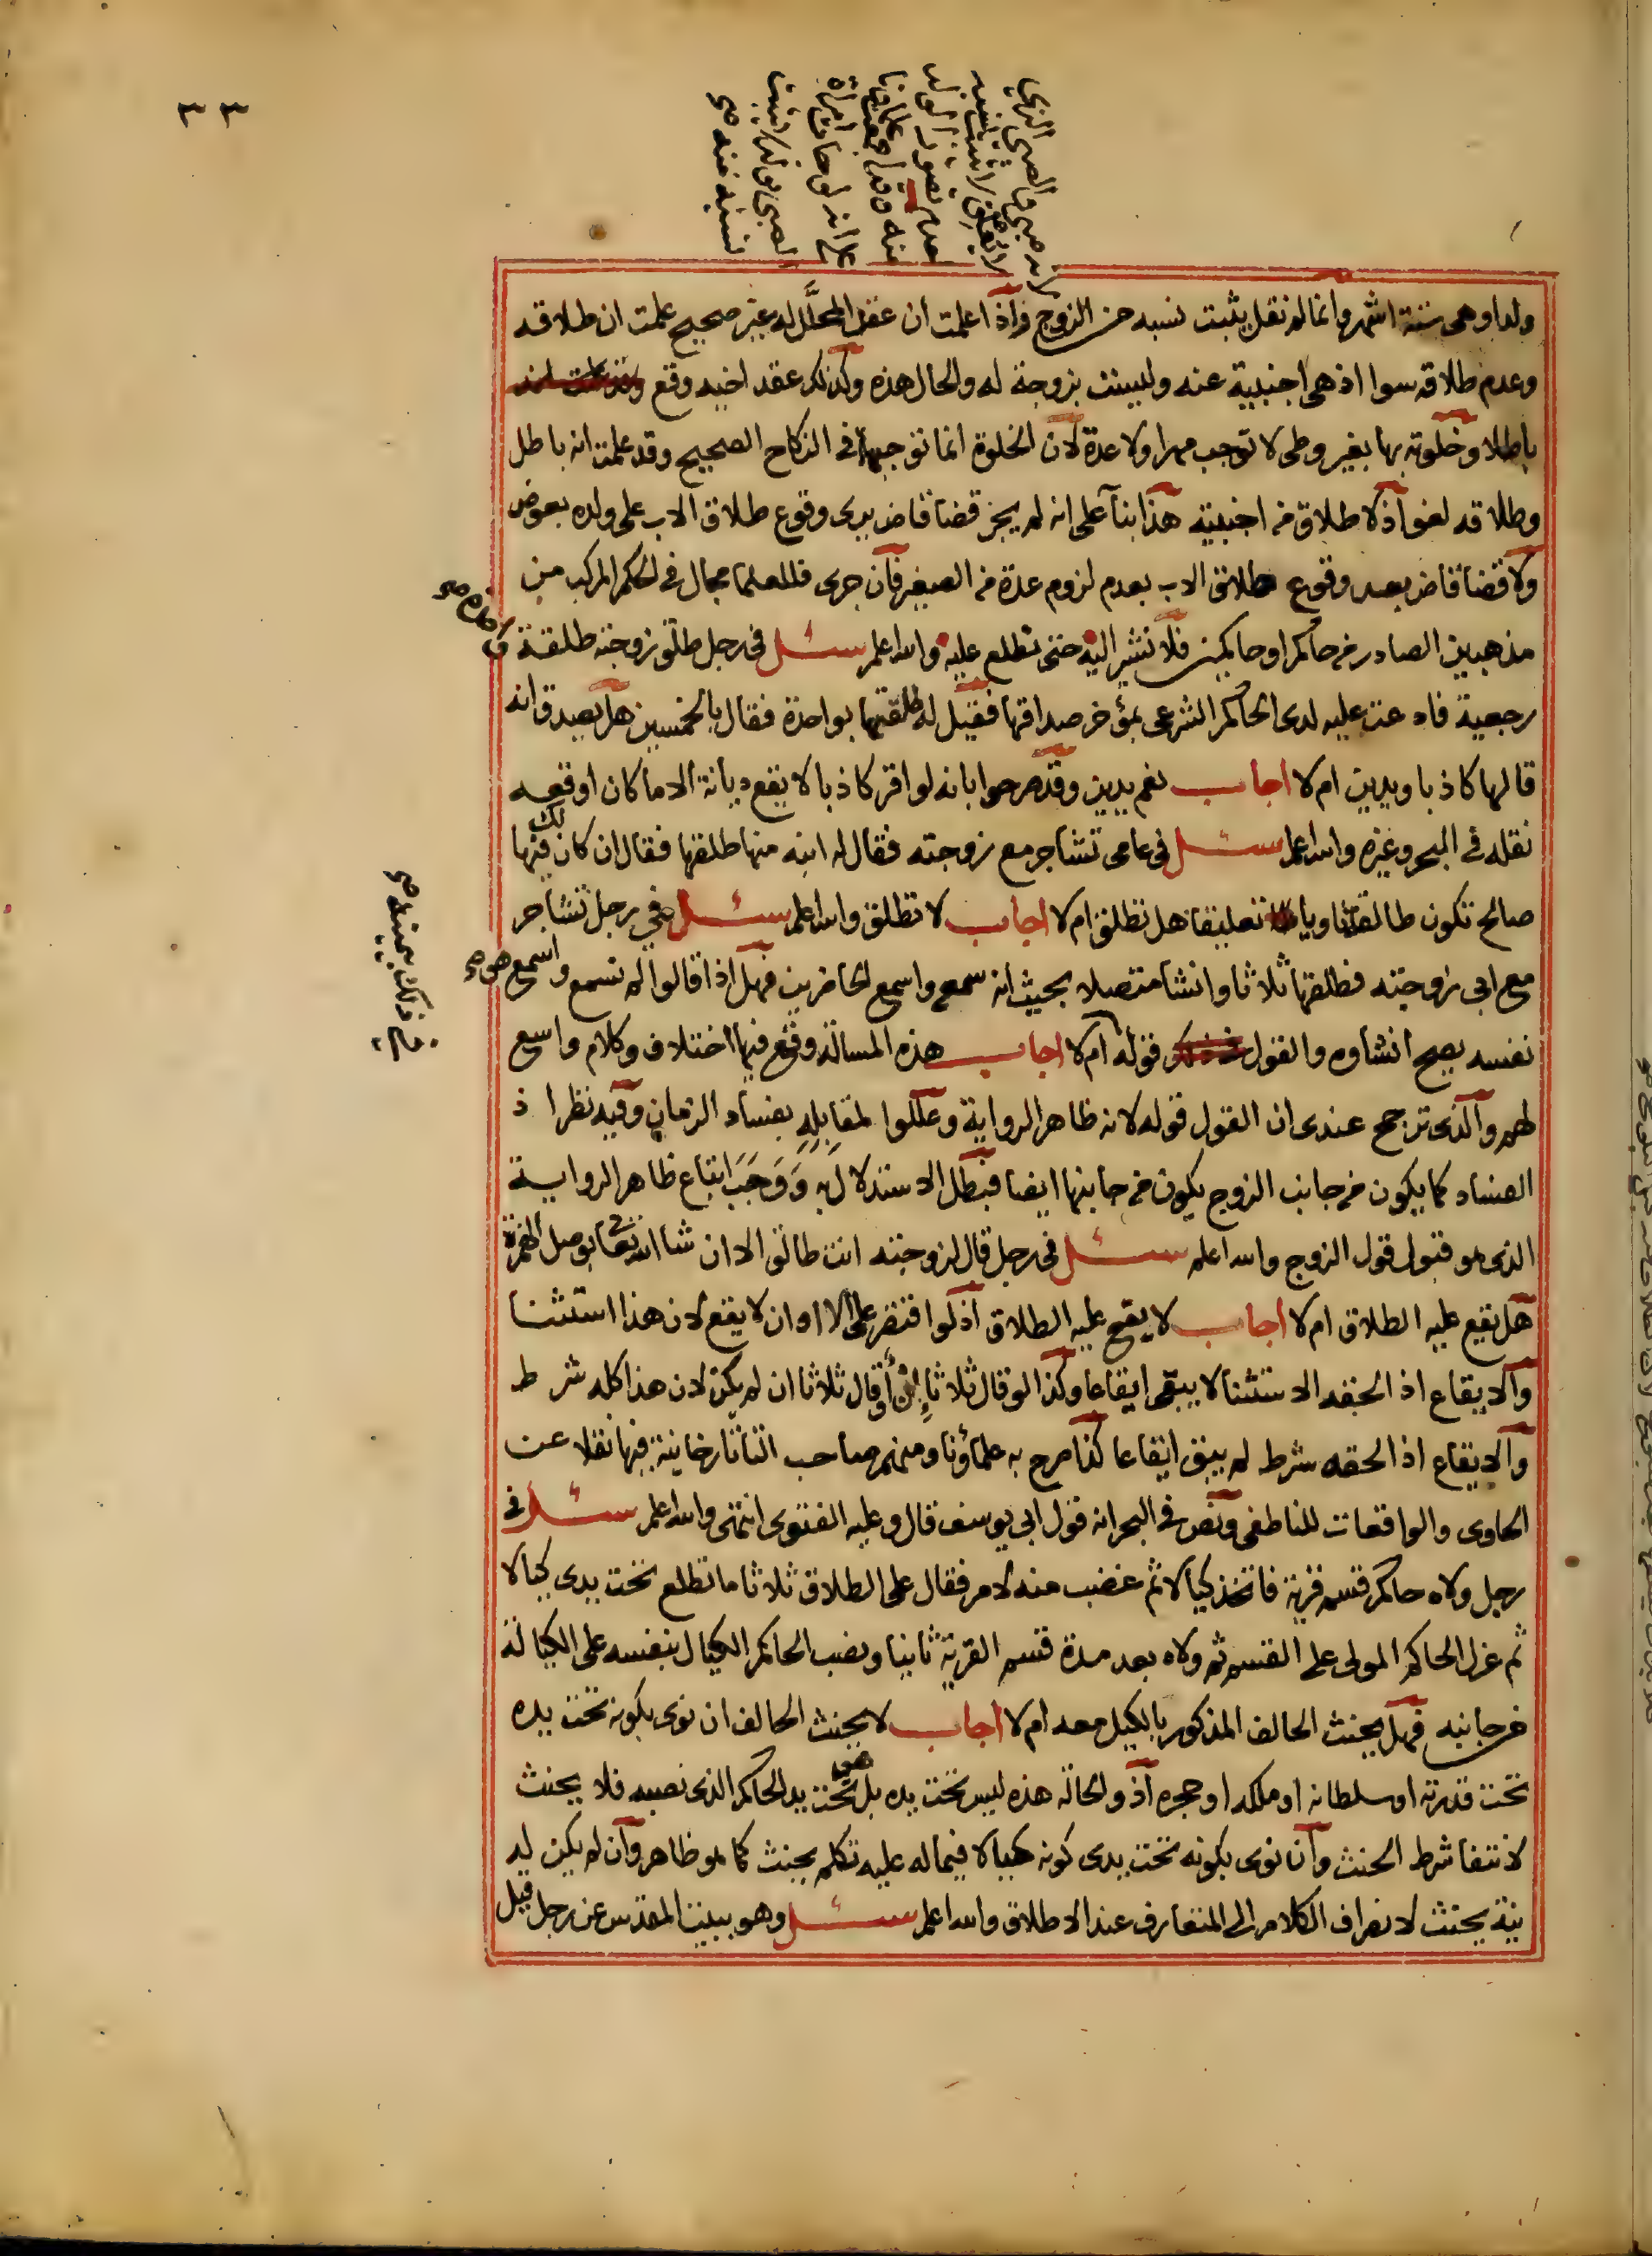 ٣٣
لانه صبي والصبي الذي
لا يطيق لا يثبت نسبه
لعدم تصور الولد
منه وقد اجمع علماؤنا
على انه لو جاءت امراة
الصبي بولد لا يثبت
نسبه منه صح
ولدا وهي ستة اشهر وانما لم نقل يثبت نسبه من الزوج واذا علمت ان عقد المحلل له غير صحيح علمت ان طلاقه
وعدم طلاقه سوا اذ هي اجنبية عنه وليست بزوجة له والحال هذه وكذلك عقد اخيه وقع
باطلا وخلوته بها بغير وطي لا توجب مهرا ولا عدة لان الخلوة انما توجبها في النكاح الصحيح وقد علمت انه باطل
وطلاقه لغو اذ لا طلاق في اجنبية هذا بنآ على انه لم يجز قضا قاض يرى وقوع طلاق الاب على ولده بعوض
ولا قضا قاض بعد وقوع طلاق الاب بعدم لزوم عدة في الصغير فان جرى فللعلما مجال في الحكم المركب من
مذهبين الصادر من حاكم او حاكمين فلا نشير اليه حتى نطلع عليه والله اعلم سئل في رجل طلق زوجته طلقة
رجعية فادعت عليه لدى الحاكم الشرعي بمؤخر صداقها فقيل له طلقتها بواحدة فقال بالخمسين هل يصدق انه
قالها كاذبا ويدين ام لا اجاب نعم يدين وقد صرحوا بانه لو اقر كاذبا لا يقع ديانة الا ما كان اوقعه
نقله في البحر وغيره والله اعلم سئل في عامي تشاجر مع زوجته فقال له ابنه منها طلقها فقال ان كان لك فيها
صالح تكون طالقة ناويا تعليقا هل تطلق ام لا اجاب لا تطلق والله اعلم سئل في رجل تشاجر
مع ابي زوجته فطلقها ثلاثا وانشا متصلا بحيث انه سمع واسمع الحاضرين فهل اذا قالوا لم نسمع واسمع هو صح
في ذلك بيمينه صح
نفسه يصح انشاوه والقول قوله ام لا اجاب هذه المسالة وقع فيها اختلاف وكلام واسع
لهم والذي ترجح عندي ان القول قوله لانه ظاهر الرواية وعللوا لمقابله بفساد الزمان وفيه نظر اذ
الفساد كما يكون من جانب الزوج يكون من جانبها ايضا فبطل الاستدلال به ووجب اتباع ظاهر الرواية
الذي هو قبول قول الزوج والله اعلم سئل في رجل قال لزوجته انت طالق الا ان شا الله تعا بوصل الهمزة
هل يقع عليه الطلاق ام لا اجاب لا يقع عليه الطلاق اذ لو اقتصر على الا او ان لا يقع لان هذا استثنا
والايقاع اذ الحقه الاستثنا لا يبقى ايقاعا وكذا لو قال ثلاثا إن أو قال ثلاثا ان لم يكن لان هذا كله شرط
والايقاع اذ الحقه شرط لم يبق ايقاعا كذا صرح به علماؤنا ومنهم صاحب التاتارخانية فيها نقلا عن
الحاوي والواقعات للناطفي ونص في البحر انه قول ابي يوسف قال وعليه الفتوى انتهى والله اعلم سئل في
رجل ولاه حاكم قسم قرية فاتخذ كيالا ثم غضب منه لامر فقال على الطلاق ثلاثا ما تطلع تحت يدي كيالا
ثم عزل الحاكم المولى على القسم ثم ولاه بعد مدة قسم القرية ثانيا ونصب الحاكم الكيال بنفسه على الكيالة
من جانبه فهل يحنث الحالف المذكور بالكيل معه ام لا اجاب لا يحنث الحالف ان نوى بكونه تحت يده
تحت قدرته او سلطانه او ملكه او حجره اذ والحالة هذه ليس تحت يده بل هو تحت يد الحاكم الذي نصبه فلا يحنث
لانتفا شرط الحنث وان نوى بكونه تحت يدي كونه كيالا فيما له عليه تكلم يحنث كما هو ظاهر وان لم يكن له
نية يحنث لانصراف الكلام الى المتعارف عند الاطلاق والله اعلم سئل وهو ببيت المقدس عن رجل قيل